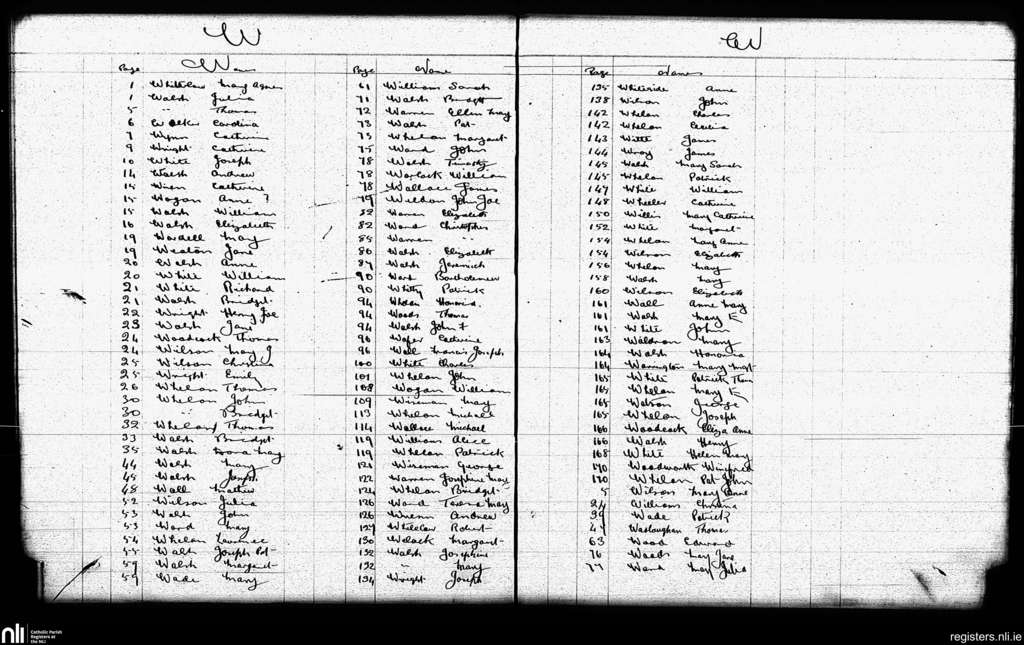 W
W
Page Name
1 Whitelaw Mary Agnes
1 Walsh Julia
5 " Thomas
6 Walker Carolina
7 Wynn Catherine
9 Wright Catherine
10 White Joseph
14 Walsh Andrew
15 Catherine
15 Hogan Anne ?
15 Walsh William
16 Walsh Elizabeth
19 Wardell Mary
19 Weston Jane
20 Walsh Anne
20 White William
21 White Richard
21 Walsh Bridget
22 Wright Henry Joe
23 Walsh Jane
24 Woodcock Thomas
24 Wilson Mary J
25 Wilson Christina
25 Wright Emily
26 Whelan Thomas
30 Whelan John
30 " Bridget
32 Whelan Thomas
33 Walsh Bridget
35 Walsh Mary
44 Walsh Mary
45 Walsh Joseph
48 Wall Mathew
52 Wilson Julia
53 Walsh John
53 Ward Mary
54 Whelan Lawrence
55 Walsh Joseph Pat
57 Walsh Margaret
59 Wade Mary
Page Name
61 Williams Sarah
71 Walsh Bridget
72 Warren Ellen Mary
73 Walsh Pat
75 Whelan Margaret
75 Ward John
78 Walsh Timothy
78 Warlock William
78 Wallace James
79 Weldon John Joe
82 Warren Elizabeth
82 Ward Christopher
85 Warren "
86 Walsh Elizabeth
87 Walsh Jeremiah
90 Ward Bartholomew
90 Whitty Patrick
94 Whelan Honoria
94 Woods Thomas
94 Walsh John F
96 Wafer Catherine
96 Wall Francis Joseph
100 White Charles
107 Whelan John
108 Wogan William
109 Wiseman Mary
113 Whelan Michael
114 Wallace Michael
119 Williams Alice
119 Whelan Patrick
121 Wiseman George
122 Warren Josephine Mary
124 Whelan Bridget
126 Ward Teresa Mary
126 Wrenn Andrew
127 Whitelaw Robert
130 Wolack Margaret
132 Walsh Josephine
132 " Mary
134 Wright Joseph
Page Names
135 Whiteside Anne
138 Wilson John
142 Whelan Charles
142 Whelan Cecilia
143 Witte James
144 Wray James
145 Walsh Mary Sarah
145 Whelan Patrick
147 White William
148 Wheeler Catherine
150 Willis Mary Catherine
152 White Margaret
154 Whelan Mary Anne
154 Wilson Elizabeth
156 Whelan Mary
158 Walsh Mary
160 Wilson Elizabeth
161 Wall Anne Mary
161 Walsh Mary E
161 White John
163 Waldron Mary
164 Walsh Honoria
164 Warrington Mary Mgt
165 White Patrick Thos
165 Whelan Mary E
165 Watson George
165 Whelan Joseph
166 Woodcock Eliza Anne
166 Walsh Henry
168 White Helen Mary
170 Woodworth Winifred
170 Whelan Pat John
5 Wilson Mary Anne
24 Williams Christina
39 Wade Patrick
47 Thomas
63 Wood Edward
76 Woods Mary Jane
77 Ward Mary Julia
nli Catholic Parish
Registers at
the NLI
registers.nli.ie